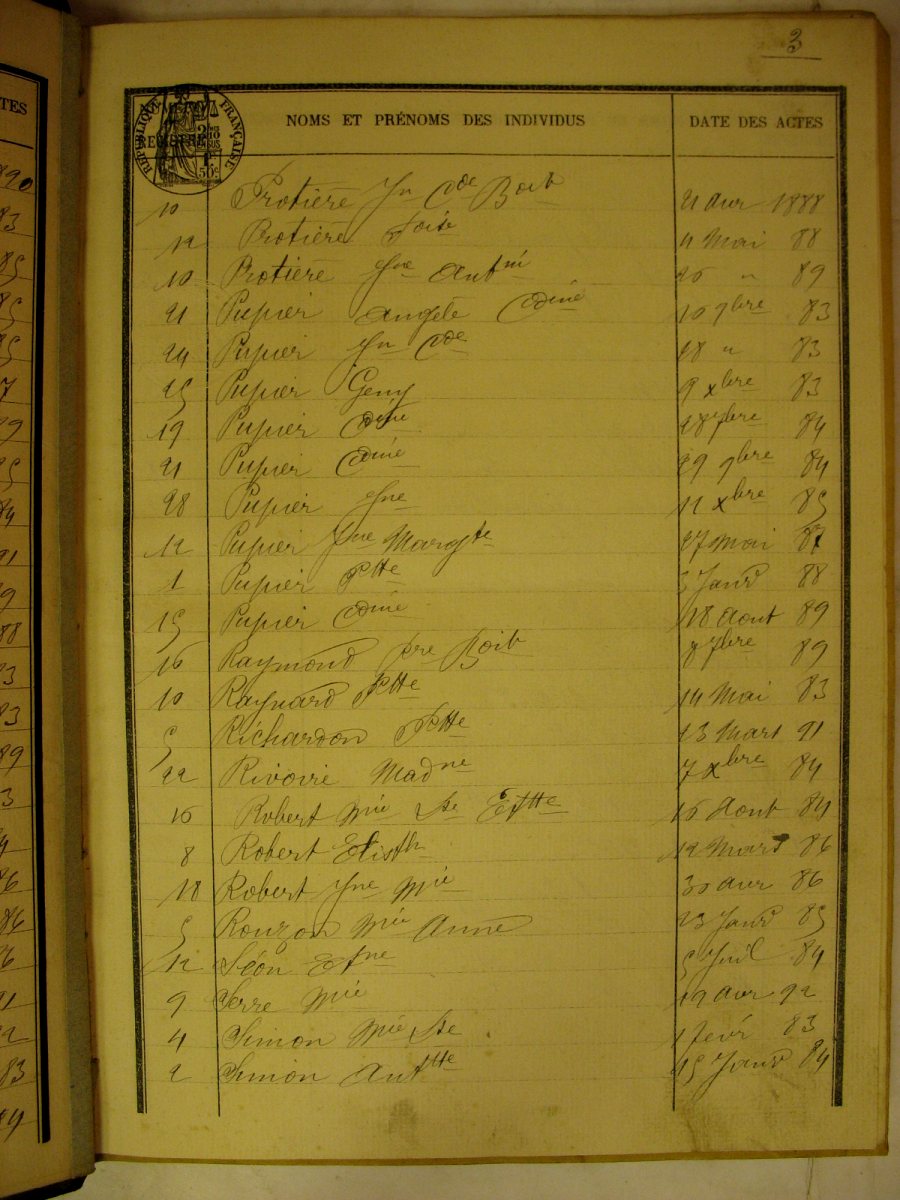 3
TES
NOMS ET PRÉNOMS DES INDIVIDUS
DATE DES ACTES
RÉPUBLIQUE FRANÇAISE
10 Protière Jn Cde Boit 21 avr 1888
12 Protière Foise 4 Mai 88
10 Protière Jne Antni 26 " 89
21 Pupier Angèle Cdine 10 9bre 83
24 Pupier Jn Cde 28 " 83
25 Pupier Geny 9 xbre 83
19 Pupier Cdine 28 7bre 84
21 Pupier Cdine 29 9bre 84
28 Pupier Jne 12 xbre 85
12 Pupier Jne Margte 27 Mai 87
1 Pupier Ptte 3 Janv 88
15 Pupier Cdine 18 Aout 89
16 Raymond pre Boit 8 7bre 89
10 Raynard Ptte 14 Mai 83
5 Richardon Ptte 23 Mars 91
22 Rivoire Madne 7 xbre 84
16 Robert Mie Ste Ettte 16 Aout 84
8 Robert Elisth 12 Mars 86
18 Robert Jne Mie 30 avr 86
5 Rouzon Mie Anne 23 Janv 85
12 Séon Etne 5 Juil 84
9 Serre Mie 19 avr 92
4 Simon Mie Ste 1 fevr 83
2 Simon Anttte 15 Janv 84